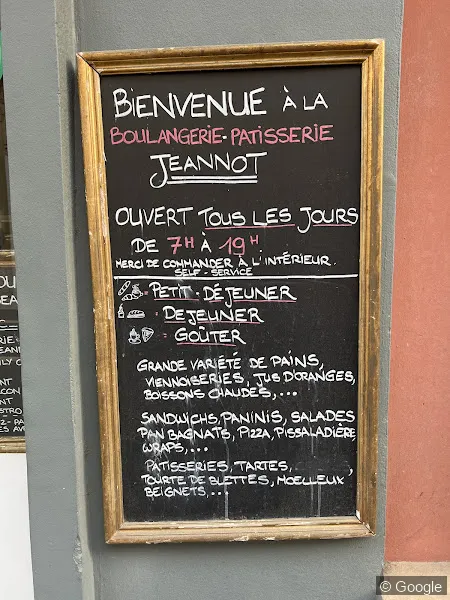 BIENVENUE À LA
BOULANGERIE-PATISSERIE
JEANNOT
OUVERT TOUS LES JOURS
DE 7H À 19H
MERCI DE COMMANDER À L'INTÉRIEUR.
SELF-SERVICE
= PETIT-DÉJEUNER
= DEJEUNER
= GOÛTER
GRANDE VARIÉTÉ DE PAINS,
VIENNOISERIES, JUS D'ORANGES,
BOISSONS CHAUDES,...
SANDWICHS, PANINIS, SALADES
PAN BAGNATS, PIZZA, PISSALADIÈRE,
WRAPS,...
PÂTISSERIES, TARTES, ,
TOURTE DE BLETTES, MOELLEUX
BEIGNETS,...
© Google